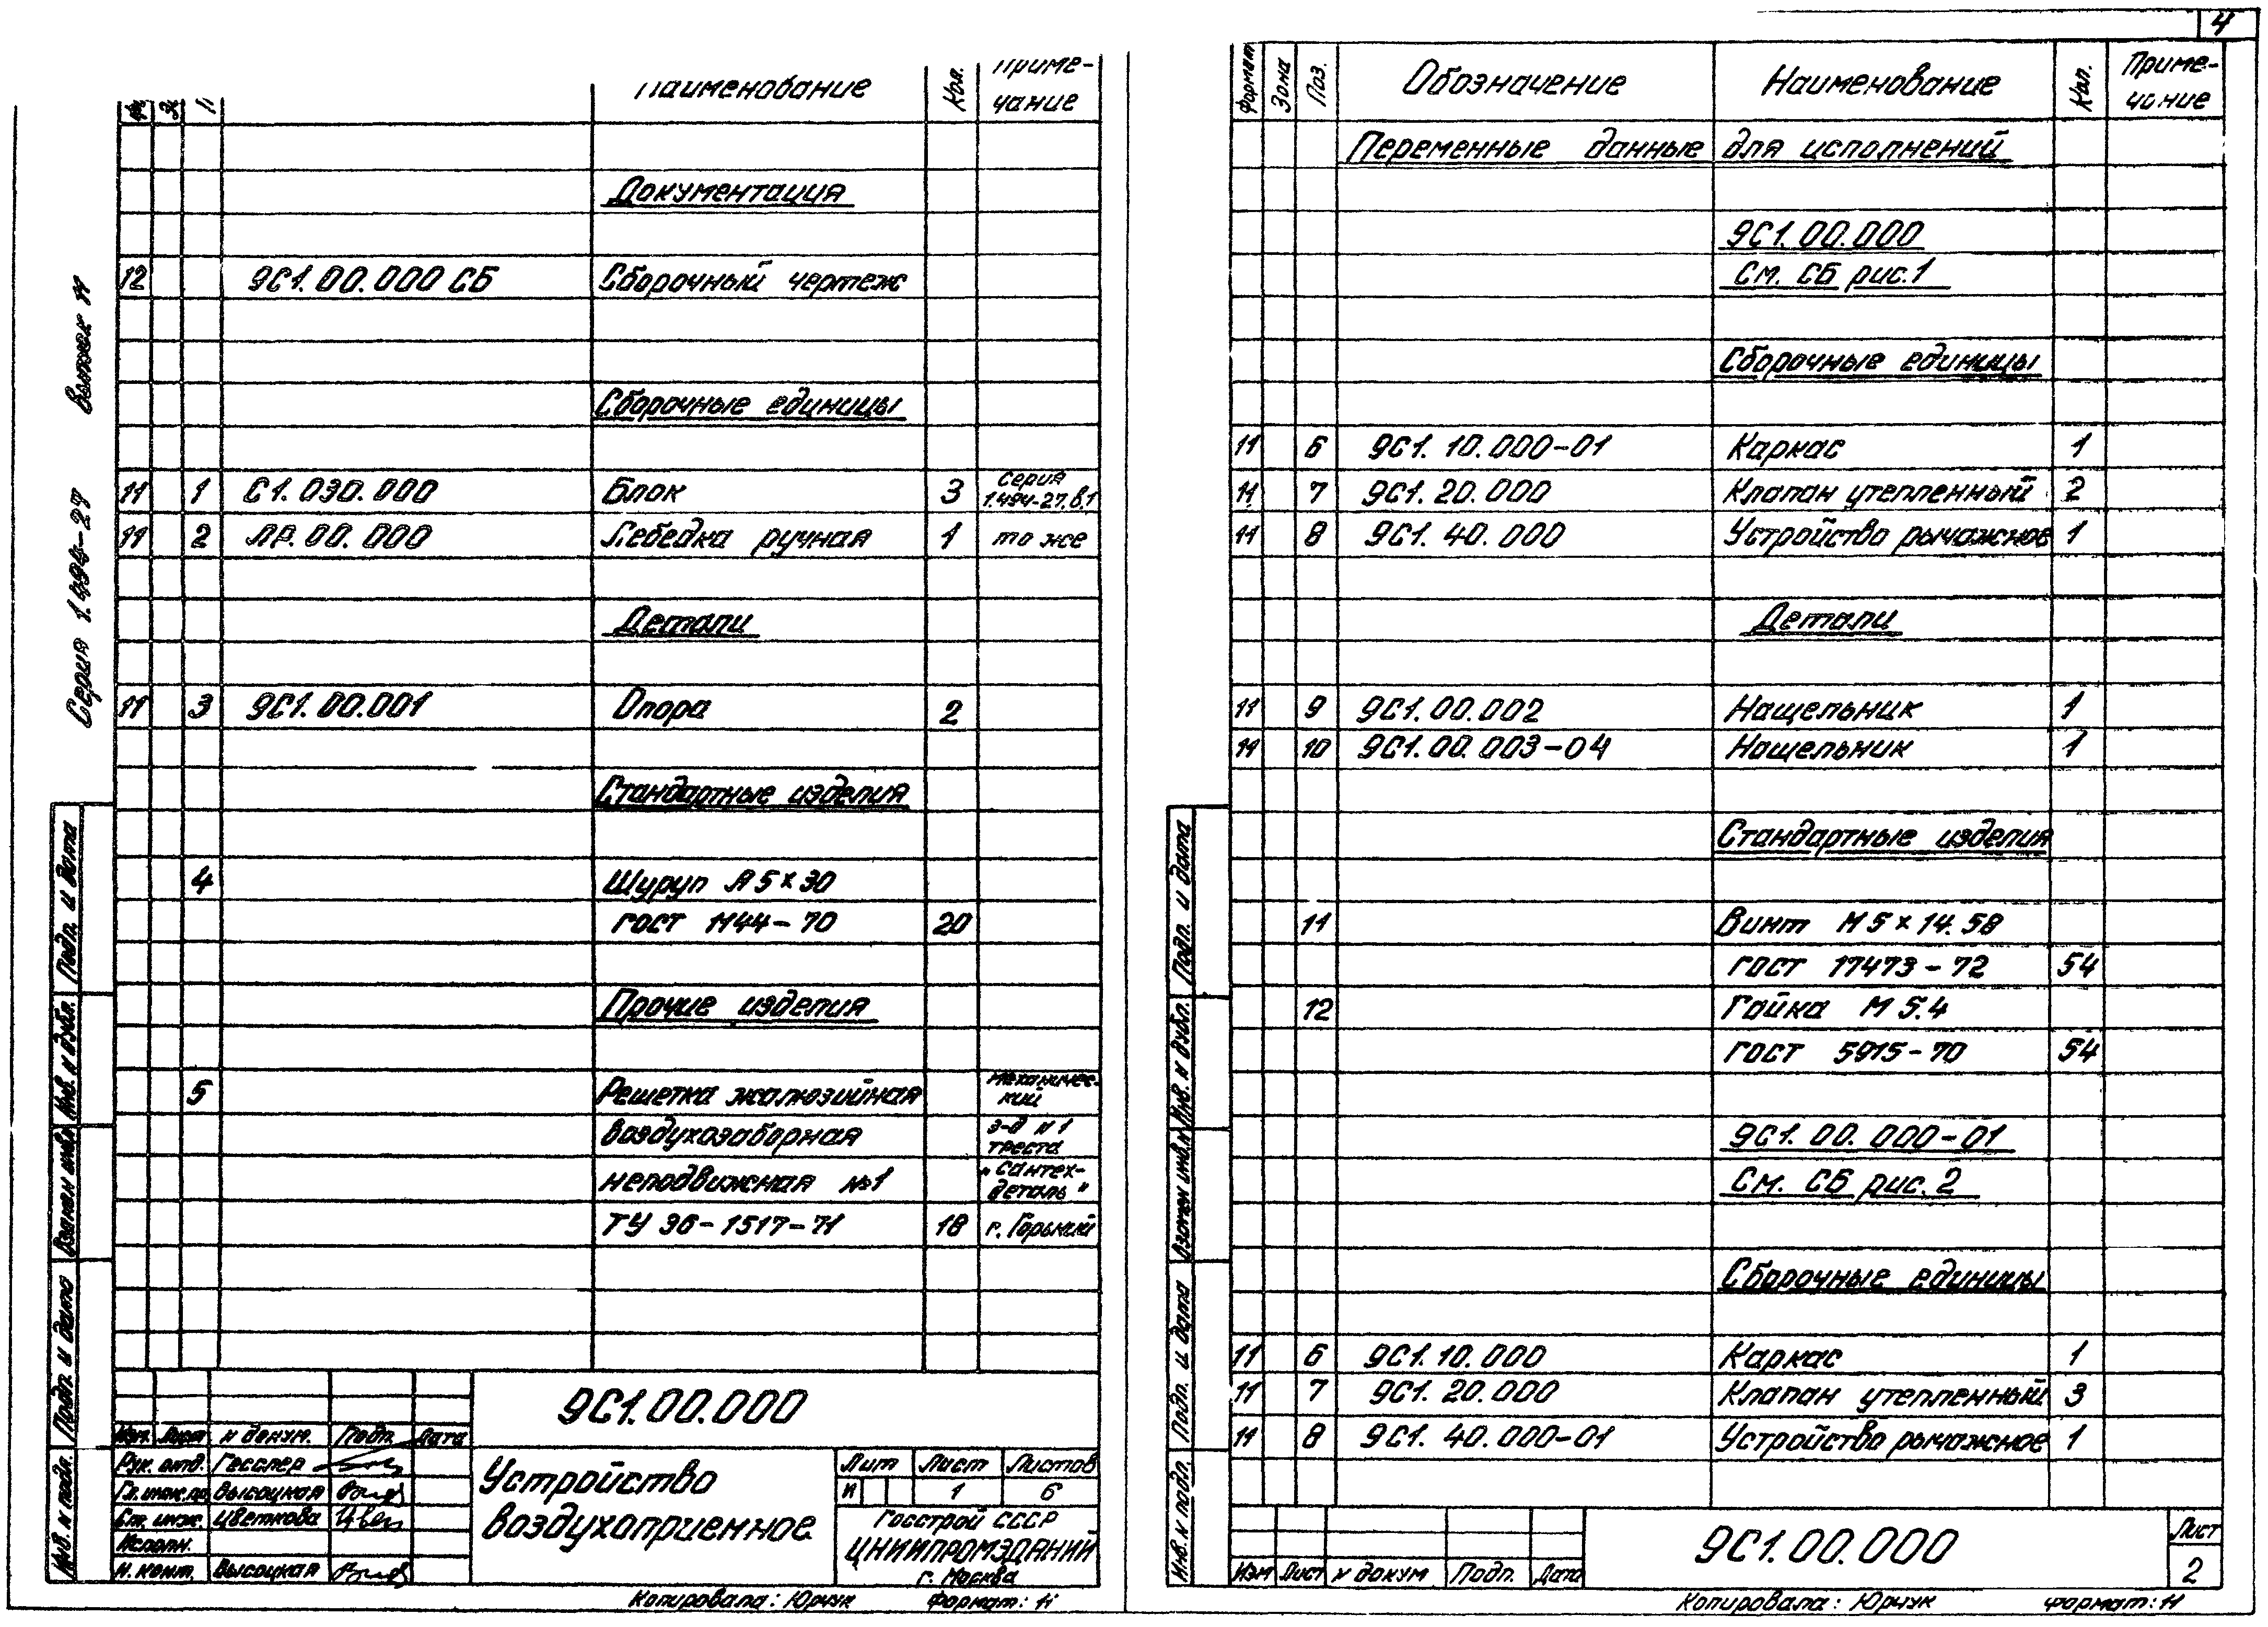 4
Серия 1.494-27 Выпуск 11
Наименование Кол. Приме-
чание
Документация
12 9С1.00.000 СБ Сборочный чертеж
Сборочные единицы
11 1 С1.030.000 Блок 3 Серия 1.494-27, в.1
11 2 ЛР.00.000 Лебедка ручная 1 то же
Детали
11 3 9С1.00.001 Опора 2
Стандартные изделия
4 Шуруп А 5×30
ГОСТ 1144-70 20
Прочие изделия
5 Решетка жалюзийная механичес-
кий
воздухозаборная з-д №1
треста
неподвижная №1 "Сантех-
деталь"
ТУ 36-1517-71 18 г. Горький
Подп. и дата
Инв. № дубл.
Взамен инв. №
Подп. и дата
Инв. № подл.
9С1.00.000
Изм. Лист № докум. Подп. Дата
Рук. отд. Гесслер
Гл. инж. пр. Высоцкая
Ст. инж. Цветкова
Исполн.
Н. конт. Высоцкая
Устройство
воздухоприемное
Лит Лист Листов
И 1 6
Госстрой СССР
ЦНИИПРОМЗДАНИЙ
г. Москва
Копировала: Юрчук Формат: 11
Формат Зона Поз. Обозначение Наименование Кол. Приме-
чание
Переменные данные для исполнений
9С1.00.000
См. СБ рис.1
Сборочные единицы
11 6 9С1.10.000-01 Каркас 1
11 7 9С1.20.000 Клапан утепленный 2
11 8 9С1.40.000 Устройство рычажное 1
Детали
11 9 9С1.00.002 Нащельник 1
11 10 9С1.00.003-04 Нащельник 1
Стандартные изделия
11 Винт М5×14.58
ГОСТ 17473-72 54
12 Гайка М5.4
ГОСТ 5915-70 54
9С1.00.000-01
См. СБ рис.2
Сборочные единицы
11 6 9С1.10.000 Каркас 1
11 7 9С1.20.000 Клапан утепленный 3
11 8 9С1.40.000-01 Устройство рычажное 1
Подп. и дата
Инв. № дубл.
Взамен инв. №
Подп. и дата
Инв. № подл.
Изм Лист № докум Подп. Дата
9С1.00.000
Лист
2
Копировала: Юрчук Формат: 11